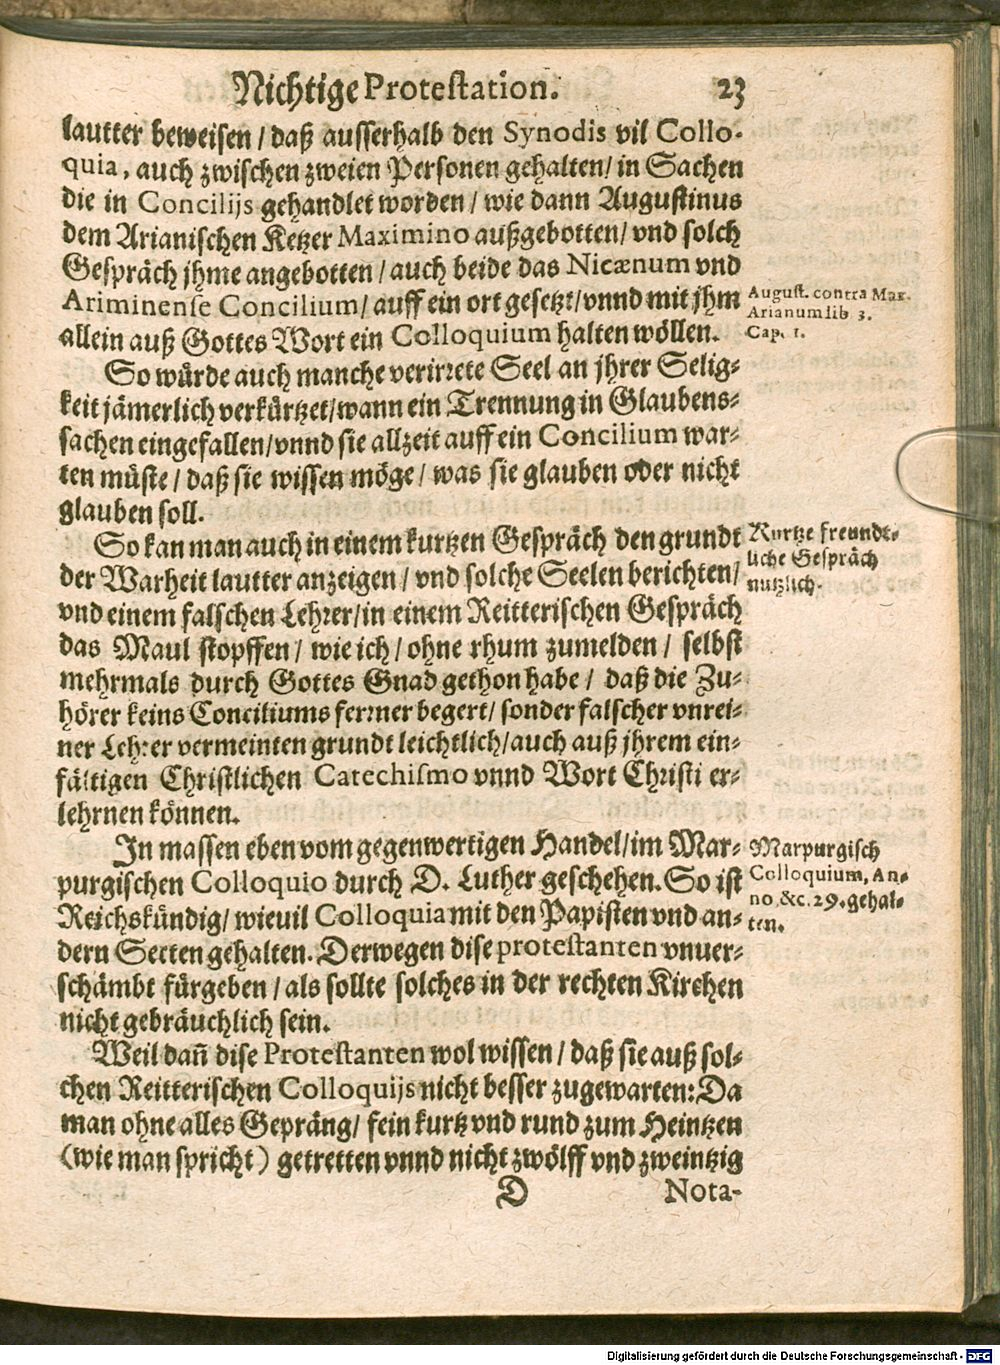 Nichtige Protestation. 23
lautter beweisen / daß ausserhalb den Synodis vil Collo-
quia, auch zwischen zweien Personen gehalten / in Sachen
die in Concilijs gehandlet worden / wie dann Augustinus
dem Arianischen Ketzer Maximino außgebotten / vnd solch
Gespräch jhme angebotten / auch beide das Nicænum vnd
Ariminense Concilium / auff ein ort gesetzt / vnnd mit jhm
allein auß Gottes Wort ein Colloquium halten wöllen.
August. contra Max.
Arianum lib 3.
Cap. 1.
So würde auch manche verirrete Seel an jhrer Selig-
keit jämerlich verkürtzet / wann ein Trennung in Glaubens-
sachen eingefallen / vnnd sie allzeit auff ein Concilium war-
ten müste / daß sie wissen möge / was sie glauben oder nicht
glauben soll.
So kan man auch in einem kurtzen Gespräch den grundt
der Warheit lautter anzeigen / vnd solche Seelen berichten /
vnd einem falschen Lehrer / in einem Reitterischen Gespräch
das Maul stopffen / wie ich / ohne rhum zumelden / selbst
mehrmals durch Gottes Gnad gethon habe / daß die Zu-
hörer keins Conciliums ferrner begert / sonder falscher vnrei-
ner Lehrer vermeinten grundt leichtlich / auch auß jhrem ein-
fältigen Christlichen Catechismo vnnd Wort Christi er-
lehrnen können.
Kurtze freundt-
liche Gespräch
nutzlich.
In massen eben vom gegenwertigen Handel / im Mar-
purgischen Colloquio durch D. Luther geschehen. So ist
Reichskündig / wieuil Colloquia mit den Papisten vnd an-
dern Secten gehalten. Derwegen dise protestanten vnuer-
schämbt fürgeben / als sollte solches in der rechten Kirchen
nicht gebräuchlich sein.
Marpurgisch
Colloquium, An-
no &c. 29. gehal-
ten.
Weil dañ dise Protestanten wol wissen / daß sie auß sol-
chen Reitterischen Colloquijs nicht besser zugewarten: Da
man ohne alles Gepräng / fein kurtz vnd rund zum Heintzen
(wie man spricht) getretten vnnd nicht zwölff vnd zweintzig
D Nota-
Digitalisierung gefördert durch die Deutsche Forschungsgemeinschaft - DFG